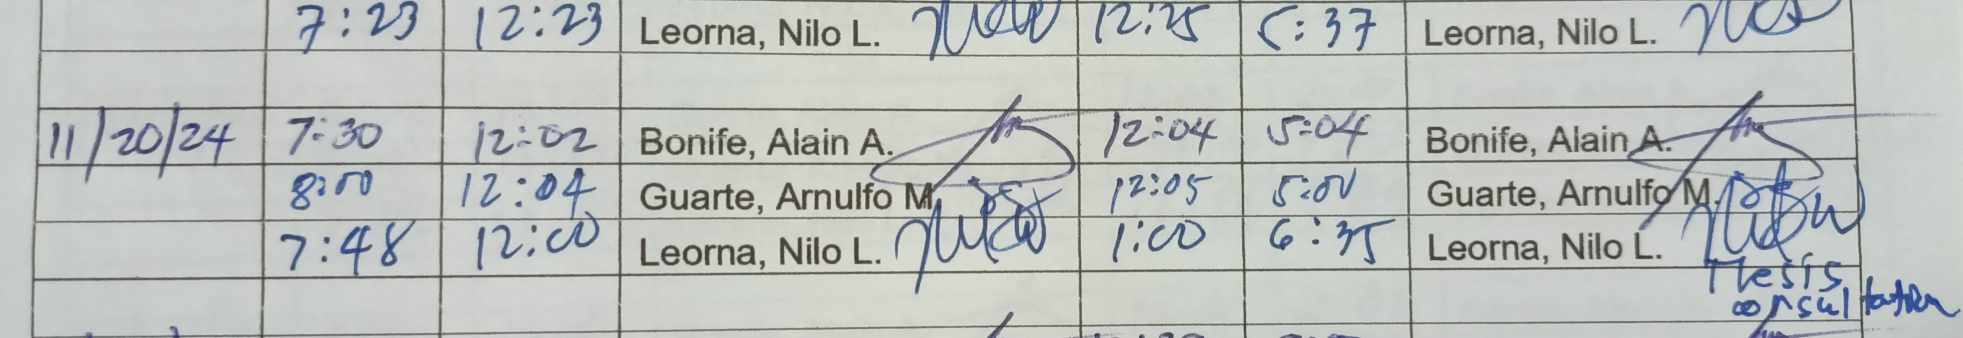 7:23 12:23 Leorna, Nilo L. 12:25 5:37 Leorna, Nilo L.
11/20/24 7:30 12:02 Bonife, Alain A. 12:04 5:04 Bonife, Alain A.
8:00 12:04 Guarte, Arnulfo M. 12:05 5:00 Guarte, Arnulfo M.
7:48 12:00 Leorna, Nilo L. 1:00 6:35 Leorna, Nilo L.
Thesis
consultation